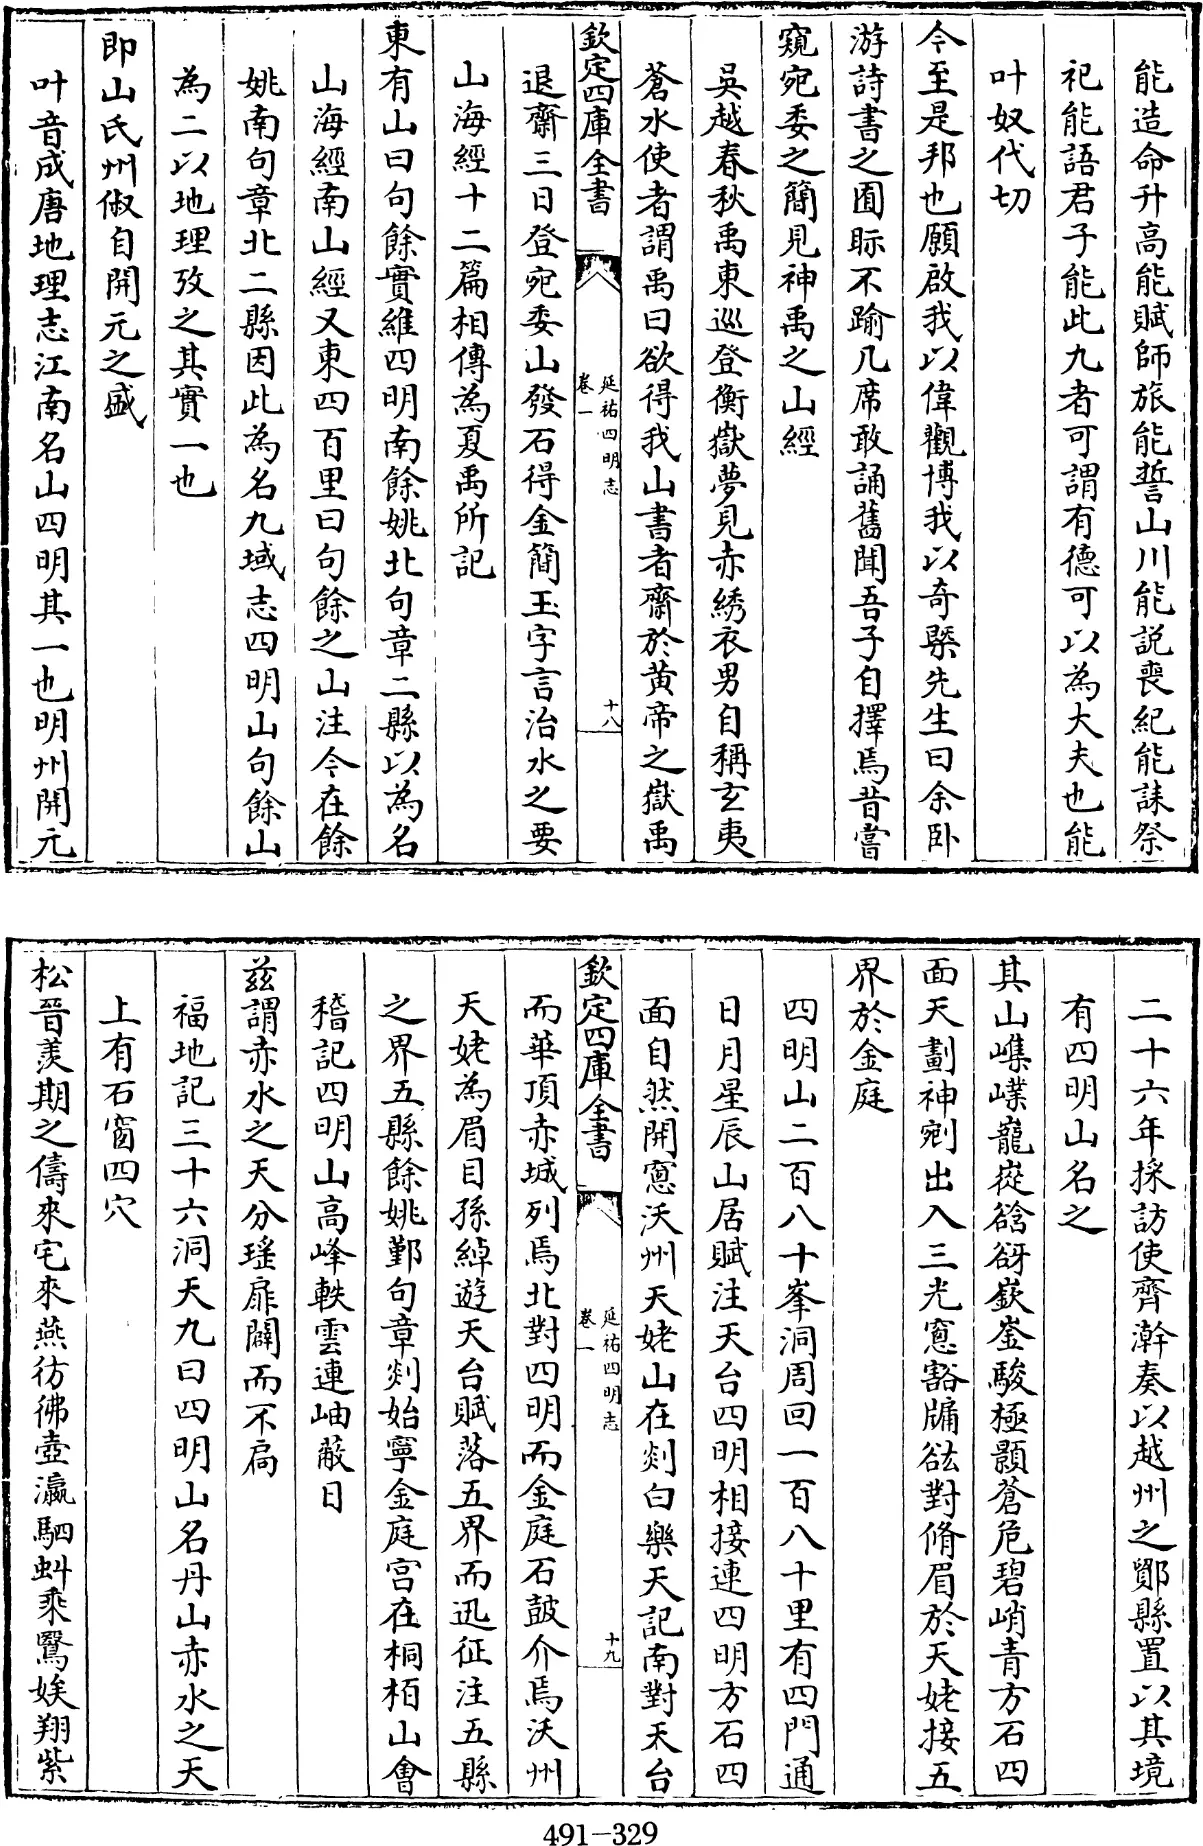 能造命升高能賦師旅能誓山川能説喪紀能誄祭
祀能語君子能此九者可謂有德可以為大夫也能
叶奴代切
今至是邦也願啟我以偉觀博我以奇槩先生曰余卧
游詩書之囿眎不踰几席敢誦舊聞吾子自擇焉昔嘗
窺宛委之簡見神禹之山經
吳越春秋禹東巡登衡嶽夢見赤綉衣男自稱玄夷
蒼水使者謂禹曰欲得我山書者齋於黄帝之嶽禹
欽定四庫全書
延祐四明志
卷一
十八
退齋三日登宛委山發石得金簡玉字言治水之要
山海經十二篇相傳為夏禹所記
東有山曰句餘實維四明南餘姚北句章二縣以為名
山海經南山經又東四百里曰句餘之山注今在餘
姚南句章北二縣因此為名九域志四明山句餘山
為二以地理攷之其實一也
即山氏州俶自開元之盛
叶音成唐地理志江南名山四明其一也明州開元
二十六年採訪使齊澣奏以越州之鄮縣置以其境
有四明山名之
其山嶕嶫巃嵷谽谺嶔崟駿極顥蒼危碧峭青方石四
面天劃神剜出入三光窻豁牖谹對脩眉於天姥接五
界於金庭
四明山二百八十峯洞周回一百八十里有四門通
日月星辰山居賦注天台四明相接連四明方石四
面自然開窻沃州天姥山在剡白樂天記南對天台
欽定四庫全書
延祐四明志
卷一
十九
而華頂赤城列焉北對四明而金庭石鼓介焉沃州
天姥為眉目孫綽遊天台賦落五界而迅征注五縣
之界五縣餘姚鄞句章剡始寧金庭宫在桐栢山會
稽記四明山高峰軼雲連岫蔽日
兹謂赤水之天分瑤扉闢而不扃
福地記三十六洞天九曰四明山名丹山赤水之天
上有石窗四穴
松晉羨期之儔來宅來燕彷彿壺瀛駟虯乘鷖娭翔紫
491-329